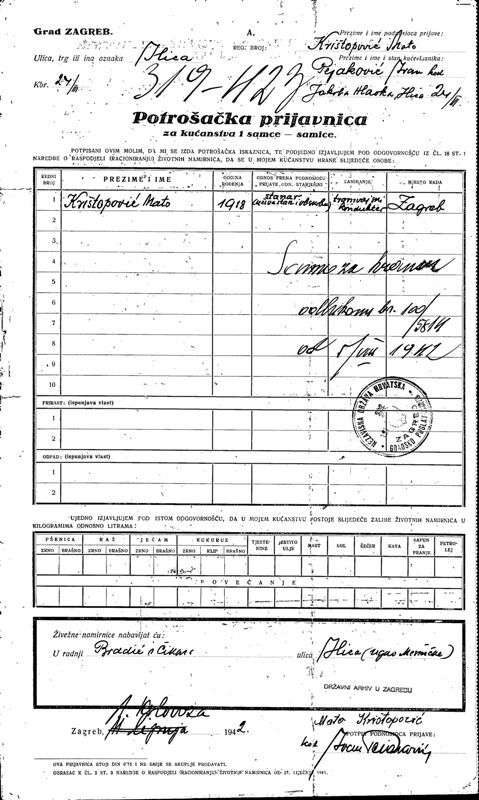 Grad ZAGREB.
A.
REG. BROJ:
Prezime i ime podnosioca prijave:
Ulica, trg ili ina oznaka Ilica
Kristopović Mato
Prezime i ime i stan kućevlasnika:
Kbr. 24/III
319-427
Pejaković Ivan kod
Jakoba Hlaska, Ilica 24/III
Potrošačka prijavnica
za kućanstva i samce — samice.
POTPISANI OVIM MOLIM, DA MI SE IZDA POTROŠAČKA ISKAZNICA, TE PODJEDNO IZJAVLJUJEM POD ODGOVORNOŠĆU IZ ČL. 18 ST. 1
NAREDBE O RASPODJELI (RACIONIRANJU) ŽIVOTNIH NAMIRNICA, DA SE U MOJEM KUĆANSTVU HRANE SLIJEDEĆE OSOBE:
REDNI BROJ
PREZIME I IME
GODINA ROĐENJA
ODNOS PREMA PODNOSIOCU PRIJAVE, ODN. STARJEŠINI
ZANIMANJE
MJESTO RADA
1 Kristopović Mato 1918 stanar tramvajski kondukter Zagreb
2
3
4
5
6
7
8
od 1942
9
10
PRIRAST: (ispunjava vlast)
1
2
NEZAVISNA DRŽAVA HRVATSKA
GRADSKO POGLAVARSTVO
ZAGREB
OTPAD: (ispunjava vlast)
1
2
UJEDNO IZJAVLJUJEM POD ISTOM ODGOVORNOŠĆU, DA U MOJEM KUĆANSTVU POSTOJE SLIJEDEĆE ZALIHE ŽIVOTNIH NAMIRNICA U
KILOGRAMIMA ODNOSNO LITRAMA:
PŠENICA RAŽ JEČAM KUKURUZ TJESTENINE JESTIVO ULJE MAST SOL ŠEĆER KAVA SAPUN ZA PRANJE PETROLEJ
ZRNO BRAŠNO ZRNO BRAŠNO ZRNO BRAŠNO ZRNO KLIP BRAŠNO
POVEĆANJE
Živežne namirnice nabavljat ću:
U radnji Bradić i Čikara ulica Ilica
DRŽAVNI ARHIV U ZAGREBU
Zagreb, 1942.
Mato Kristopović
POTPIS PODNOSIOCA PRIJAVE:
kod
OVA PRIJAVNICA STOJI DIN 0'75 I NE SMIJE SE SKUPLJE PRODAVATI.
OBRAZAC K ČL. 2 ST. 2 NAREDBE O RASPODJELI (RACIONIRANJU) ŽIVOTNIH NAMIRNICA OD 17. SIJEČNJA 1941.